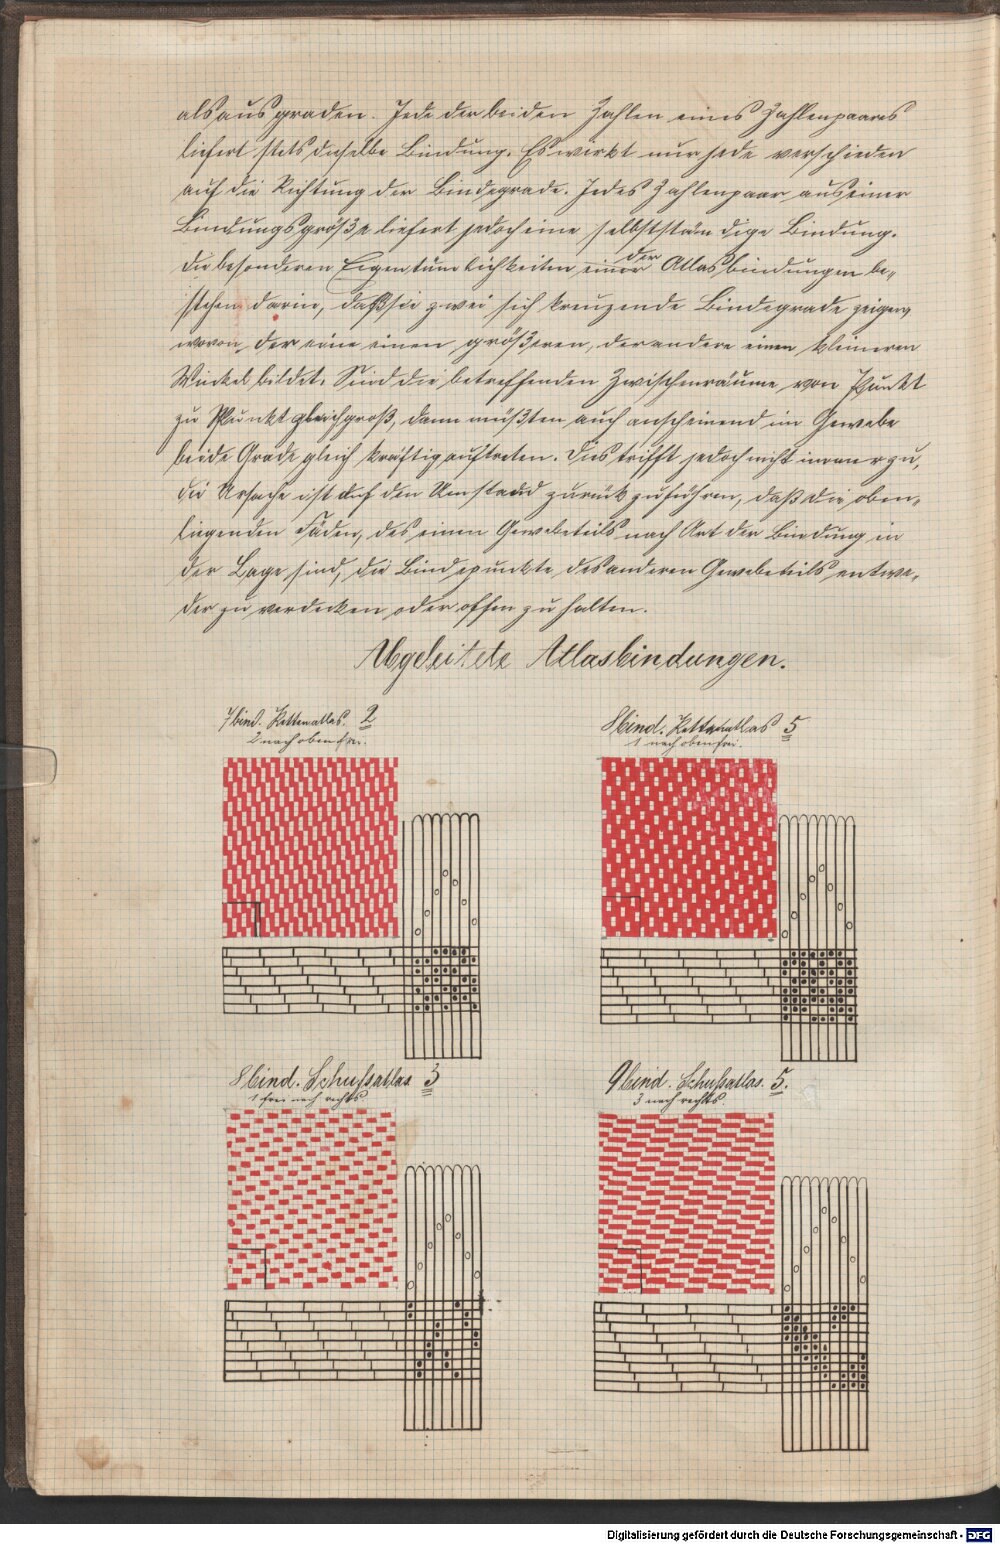 als aus graden. Jede der beiden Zahlen eines Zahlenpaares
liefert stets dieselbe Bindung. Es wirkt nur jede verschieden
auf die Richtung der Bindegrade. Jedes Zahlenpaar aus einer
Bindungsgröße liefert jedoch eine selbstständige Bindung.
Die besonderen Eigentümlichkeiten einer der Atlasbindungen be-
stehen darin, daß sie zwei sich kreuzende Bindegrade zeigen,
wovon der eine einen größeren, der andere einen kleineren
Winkel bildet. Sind die betreffenden Zwischenräume von Punkt
zu Punkt gleichgroß, dann müßten auch anscheinend im Gewebe
beide Grade gleich kräftig auftreten. Dies trifft jedoch nicht immer zu,
die Ursache ist auf den Umstand zurück zuführen, daß die oben-
liegenden Fäden, des einen Gewebeteils nach Art der Bindung in
der Lage sind, die Bindepunkte des anderen Gewebeteils entwe-
der zu verdecken oder offen zu halten.
Abgeleitete Atlasbindungen.
7bind. Kettenatlas 2
2 nach oben frei.
8bind. Kettenatlas 5
1 nach oben frei.
8bind. Schußatlas 3
1 frei nach rechts
9bind. Schußatlas 5.
3 nach rechts
Digitalisierung gefördert durch die Deutsche Forschungsgemeinschaft - DFG